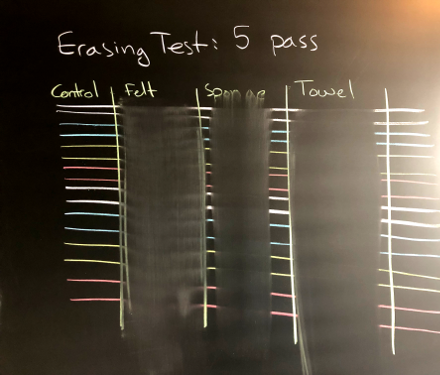 Erasing Test: 5 pass
Control Felt Sponge Towel